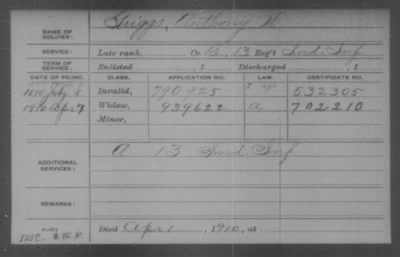 NAME OF SOLDIER: Griggs, Anthony W.
SERVICE: Late rank, Co B, 13 Reg't Ind. Inf
TERM OF SERVICE: Enlisted , 1 Discharged , 1
DATE OF FILING. CLASS. APPLICATION NO. LAW. CERTIFICATE NO.
July 5 Invalid, 790925 532305
1910 Apr 7 Widow, 939622 a 702210
Minor,
ADDITIONAL SERVICES: A 13 Ind. Inf
REMARKS:
Died Apr 1, 1910, at